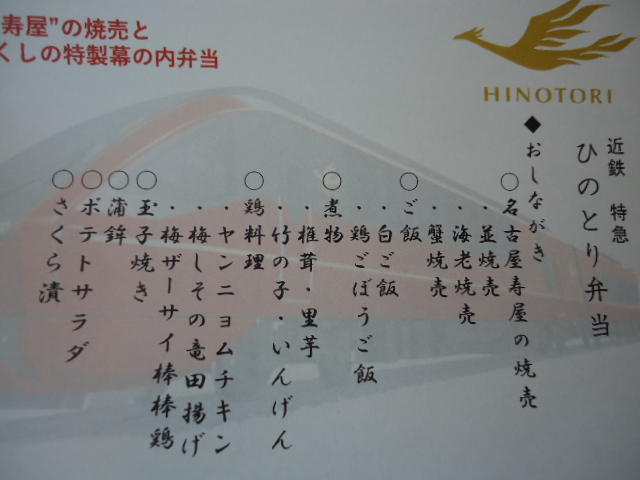 寿屋”の焼売と
くしの特製幕の内弁当
HINOTORI
近鉄 特急
ひのとり弁当
◆おしながき
○名古屋寿屋の焼売
・並焼売
・海老焼売
・蟹焼売
○ご飯
・白ご飯
・鶏ごぼうご飯
○煮物
・椎茸・里芋
・竹の子・いんげん
○鶏料理
・ヤンニョムチキン
・梅しその竜田揚げ
・梅ザーサイ棒棒鶏
○玉子焼き
○蒲鉾
○ポテトサラダ
○さくら漬